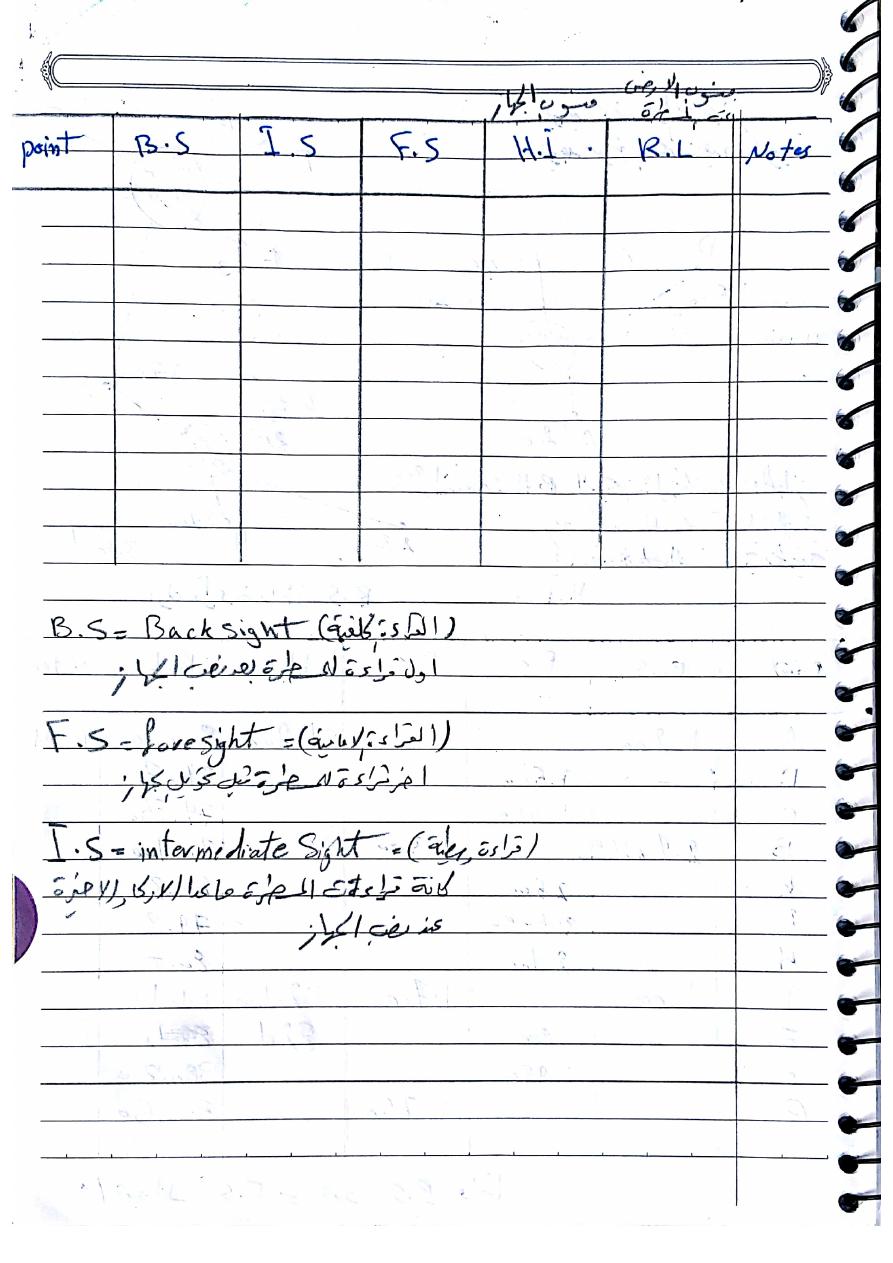 منسوب الارض
منسوب الجهاز تحت المسطرة
point B.S I.S F.S H.I . R.L Notes
B.S = Back sight (القراءة الخلفية)
اول قراءة للمسطرة بعد نصب الجهاز
F.S = foresight = (القراءة الامامية)
اخر قراءة للمسطرة قبل تحويل الجهاز
I.S = intermediate Sight = (قراءة وسطية)
كافة قراءات المسطرة ماعدا الاولى والاخيرة
عند نصب الجهاز